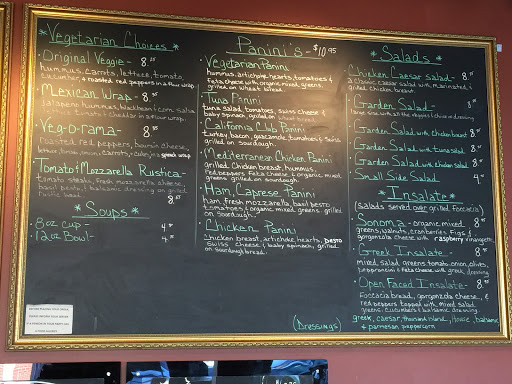 *Vegetarian Choices*
• Original Veggie - 8.25
hummus, carrots, lettuce, tomato,
cucumber & roasted red peppers in a flour wrap
• Mexican Wrap - 8.
jalapeno hummus, blackbean corn salsa
tomato & cheddar in a flour wrap
• Veg-o-rama - 8.
roasted red peppers, boursin cheese,
lettuce, onion, carrots, cukes, in a spinach wrap
Tomato & Mozzarella Rustica -
tomato steaks, fresh mozzarella cheese,
basil pesto, & balsamic dressing on grilled
rustic bread 8.
*Soups*
• 8 oz cup - 4.
• 12 oz Bowl - 4.
Panini's - $10.95
• Vegetarian Panini
hummus, artichoke hearts, tomatoes &
feta cheese with organic mixed greens
grilled on wheat bread
• Tuna Panini
tuna salad, tomatoes, swiss cheese &
baby spinach, grilled on wheat bread.
• California Club Panini
turkey, bacon, guacamole, tomatoes & swiss
grilled on sourdough.
• Mediterranean Chicken Panini
grilled chicken breast, hummus,
red peppers, feta cheese & organic mixed
greens grilled on sourdough
• Ham, Caprese Panini
ham, fresh mozzarella, basil pesto
tomatoes & organic mixed greens grilled
on sourdough.
• Chicken Panini
chicken breast, artichoke hearts, pesto
swiss cheese & baby spinach, grilled
on sourdough bread.
(Dressings)
*Salads*
Chicken Caesar Salad - 8.
a classic caesar salad with marinated,
grilled chicken breast
• Garden Salad - 7.
large size with all the veggies & choice of dressing
• Garden Salad with chicken breast 8.
• Garden Salad with tuna salad 8.
• Garden Salad with chicken salad 8.
• Small Side Salad 4.
*Insalate*
(salads served over grilled Foccacia)
• Sonoma - organic mixed 8.
greens, walnuts, cranberries, figs &
gorgonzola cheese with raspberry vinaigrette
• Greek Insalate - 8.
mixed salad greens, tomato, onion, olives,
pepperoncini & feta cheese with greek dressing
• Open Faced Insalate - 8.
Foccacia bread, gorgonzola cheese, &
red peppers topped with mixed salad
greens, cucumbers & balsamic dressing
greek, caesar, thousand island, House, balsamic
& parmesan peppercorn